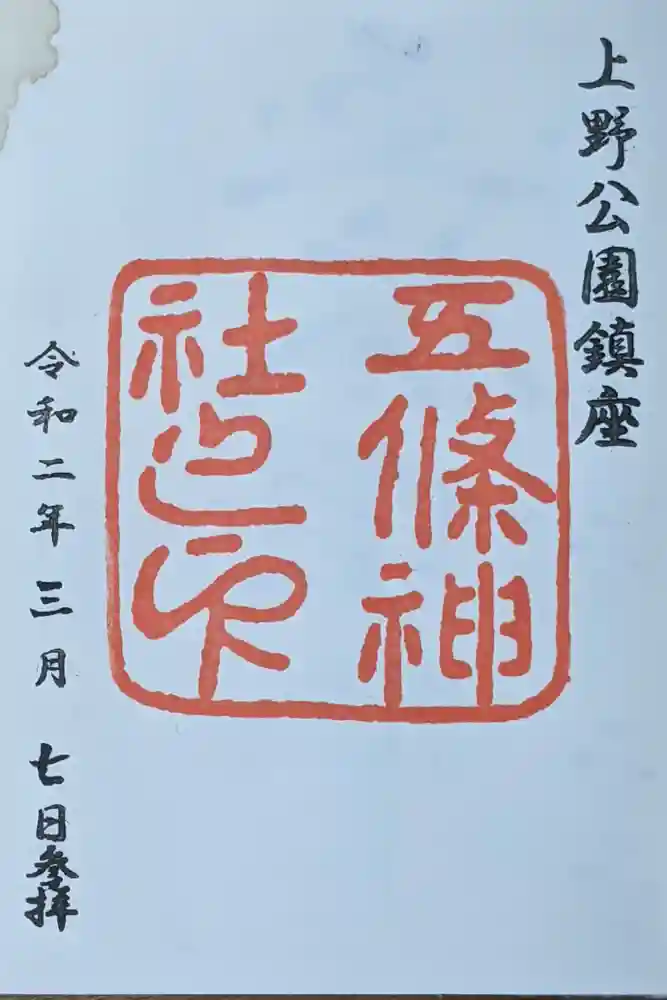 上野公園鎮座
五條神
社之印
令和二年三月七日参拝